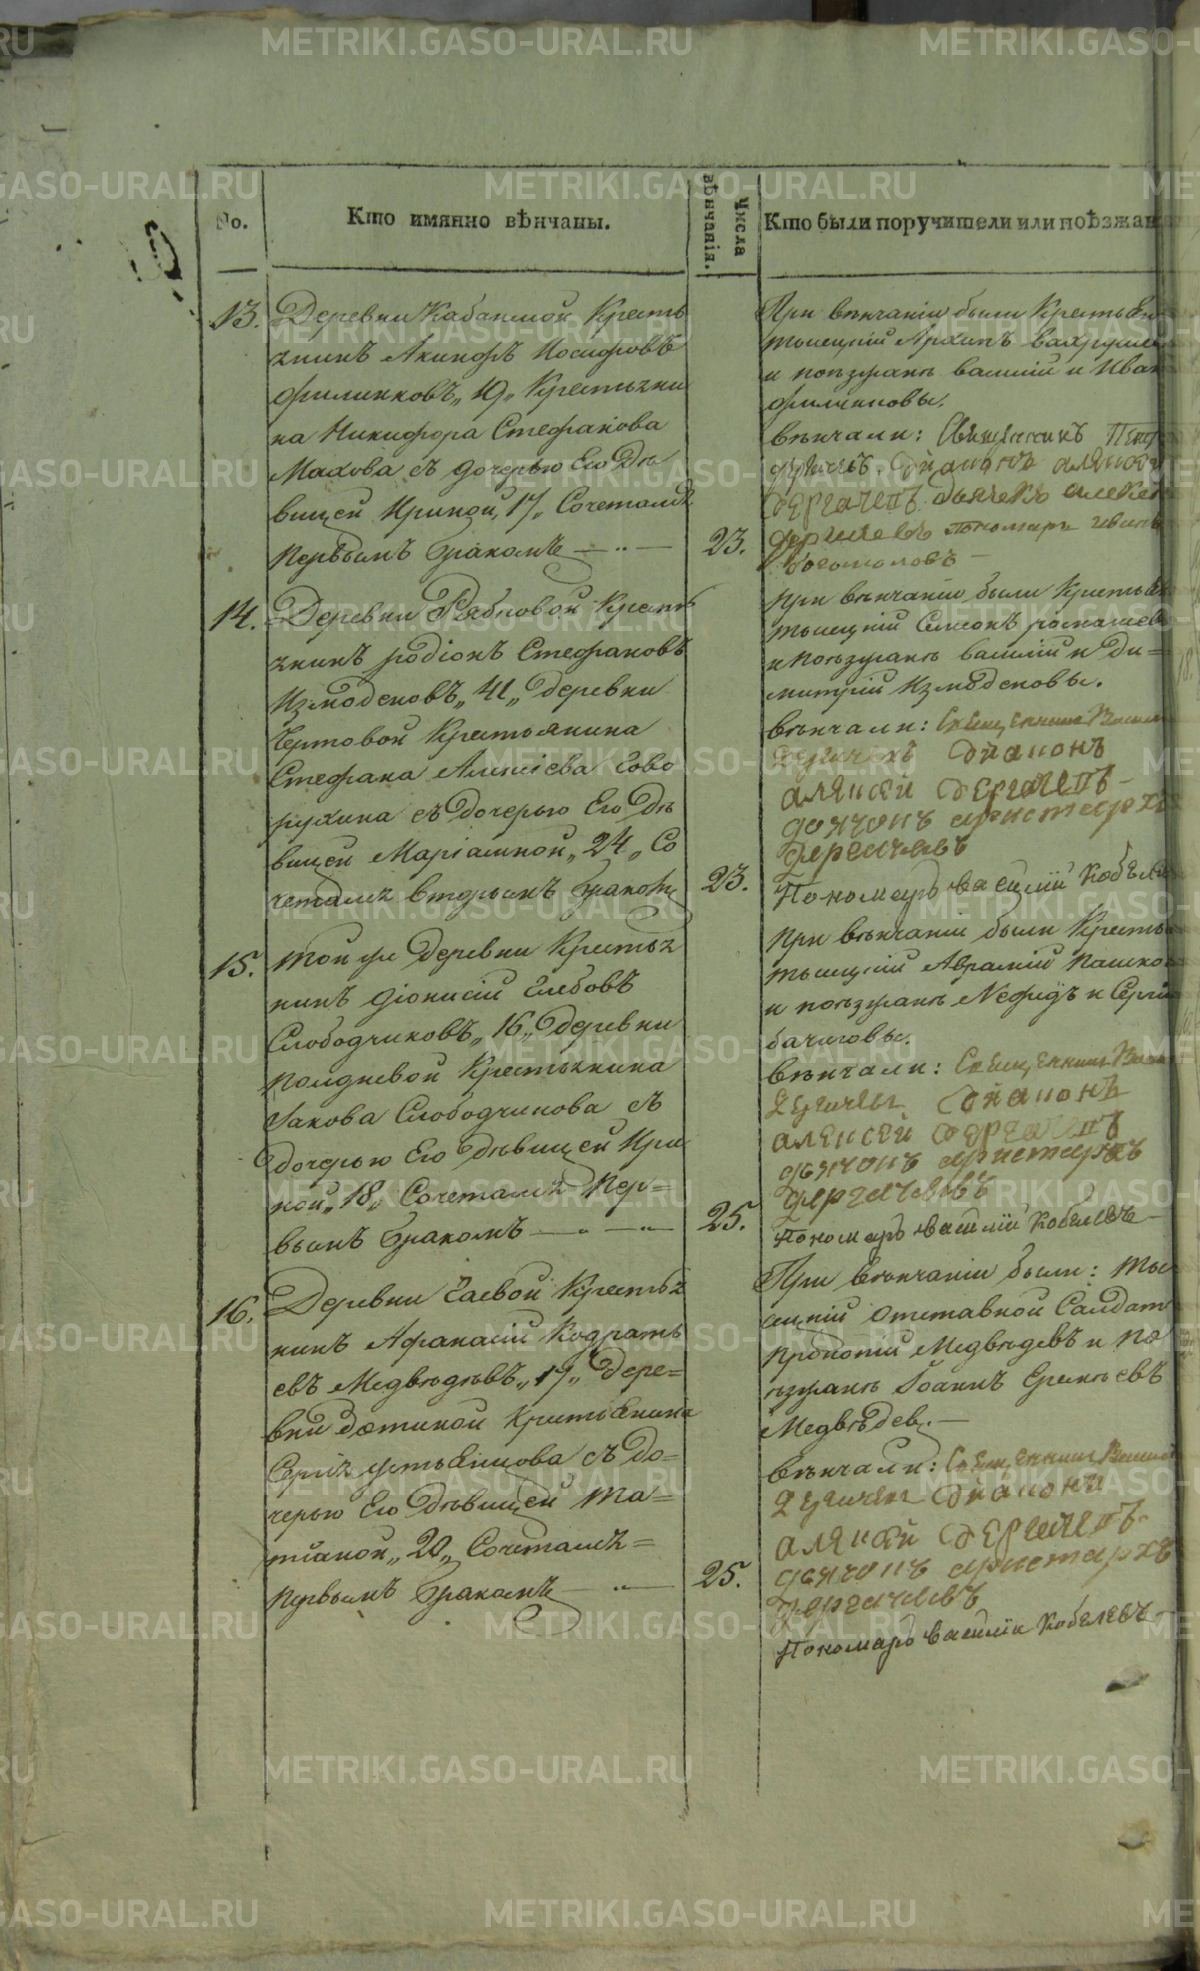 No.
Кто имянно вѣнчаны.
Числа вѣнчанія.
Кто были поручители или поѣзжан
13.
Деревни Кабанской Кресть
янинъ Акинфъ Иосифовъ
Филинковъ„ 19„ Крестьяни
на Никифора Стефанова
Махова съ дочерью Его Дѣ
вицей Ириной„ 17„ Сочетался
первымъ бракомъ
23.
При вѣнчаніи были Крестьян
тысецкій Архипъ
и поѣзжанѣ василій и Иван
Филинковы.
вѣнчали: Священникъ Петр
Діаконъ алексѣй
дергачевъ дьячекъ алекс
пономарь иванъ
богомоловъ
14.
Деревни Рябковой Кресть
янинъ родіонъ Стефановъ
Измоденовъ„ 41„ деревни
Чертовой Крестьянина
Стефана Алексіева Гово
рухина съ Дочерью Его Дѣ
вицей Маріамной„ 24„ Со
четался вторымъ бракомъ
23.
при вѣнчаніи были Крестьян
тысецкій Симеонъ
и поѣзжанѣ василій и Ди=
митрій Измоденовы.
вѣнчали: Священникъ Васил
Діаконъ
алексѣй дергачевъ
дьячокъ аристархъ
дергачевъ
Пономарь василій Кобелев
15.
той же деревни Крестья
нинъ діонисій Глебовъ
Слободчиковъ„ 16„ Деревни
полдневой Крестьянина
Іакова Слободчикова съ
дочерью Его Дѣвицей Ири
ной„ 18„ Сочетался Пер=
вымъ бракомъ
25.
при вѣнчаніи были Кресть
тысецкій Аврамій пашко
и поѣзжанѣ Нефедъ и Сергій
бачиговы.
вѣнчали: Священникъ Васи
Діаконъ
алексѣй дергачевъ
дьячокъ аристархъ
дергачевъ
Пономарь василій Кобелевъ
16.
Деревни Гаевой Крестья
нинъ Афанасій Кодрать
евъ Медвѣдѣвъ„ 19„ Дере=
вни Крестьянина
Сергія устьянцова съ до=
черью Его Дѣвицей та=
тіаной„ 20„ Сочетался=
первымъ бракомъ
25.
При вѣнчаніи были: ты
сяцкій отставной Салдат
Прокопій Медвѣдевъ и По
ѣзжанѣ Іоаннъ Еремѣевъ
Медвѣдев.
вѣнчали: Священникъ Васил
Діаконъ
алексѣй дергачевъ
дьячокъ аристархъ
дергачевъ
Пономарь василій Кобелевъ
METRIKI.GASO-URAL.RU